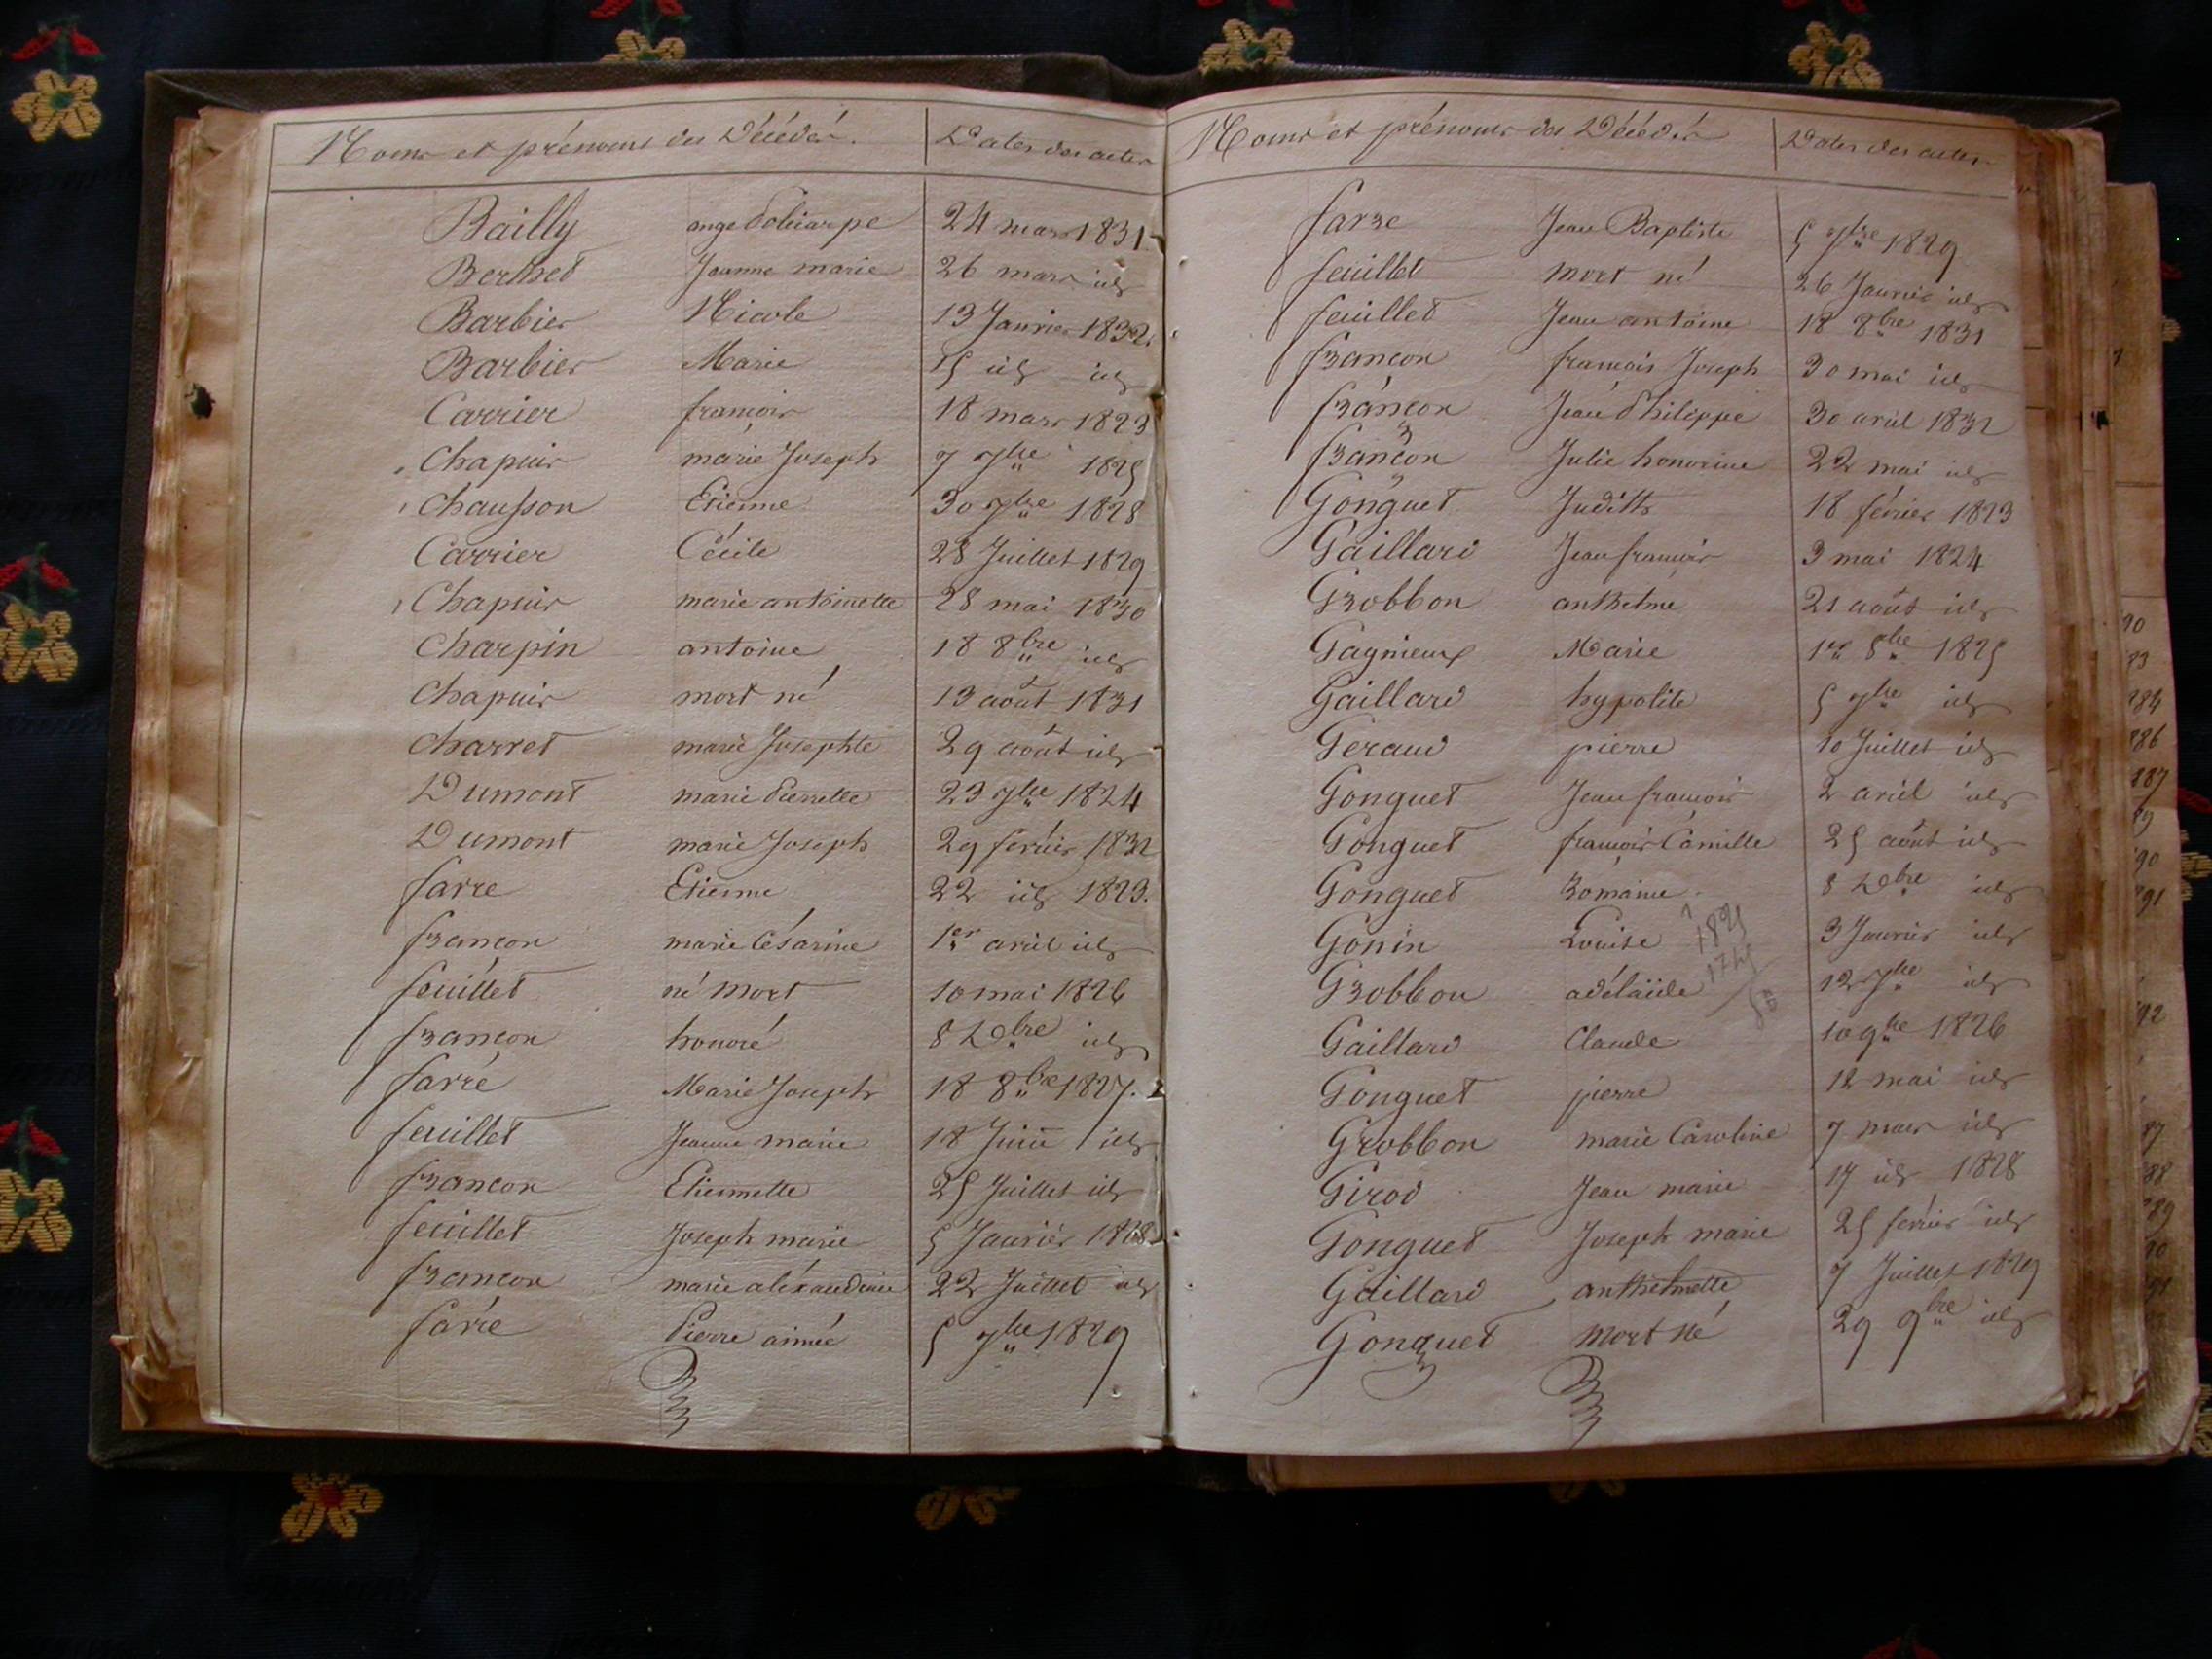 Noms et prénoms des Décédés. Dates des actes
Bailly ange Policarpe 24 mars 1831
Berthet Jeanne marie 26 mars id
Barbier Nicole 13 Janvier 1832.
Barbier Marie 15 id id
Carrier françois 18 mars 1823
Chapuis marie Joseph 7 7bre 1825
Chausson Etienne 30 7bre 1828
Carrier Cécile 28 Juillet 1829
Chapuis marie antoinette 28 mai 1830
Charpin antoine 18 8bre id
Chapuis mort né 13 août 1831
Charret marie Josephte 29 août id
Dumont marie Pierrette 23 7bre 1824
Dumont marie Joseph 29 février 1832
farre Etienne 22 id 1823.
francon marie Césarine 1er avril id
feuillet né mort 10 mai 1826
francon honoré 8 Dbre id
farre Marie Joseph 18 8bre 1827.
feuillet Jeanne marie 18 Juin id
francon Etiennette 25 Juillet id
feuillet Joseph marie 5 Janvier 1828
francon marie aléxandrine 22 Juillet id
farre Pierre aimée 5 7bre 1829
Noms et prénoms des Décédés Dates des actes
farre Jean Baptiste 5 7bre 1829
feuillet mort né 26 Janvier id
feuillet Jean antoine 18 8bre 1831
francon françois Joseph 30 mai id
francon Jean Philippe 30 avril 1832
francon Julie honorine 22 mai id
Gonguet Judith 18 février 1823
Gaillard Jean françois 3 mai 1824
Grobbon anthelme 21 août id
Gagnieux Marie 1er 8bre 1825
Gaillard hypolite 5 7bre id
Geraud pierre 10 Juillet id
Gonguet Jean françois 2 avril id
Gonguet françois Camille 25 août id
Gonguet Romaine 8 Dbre id
Gonin Louise 1825 3 Janvier id
Grobbon adélaïde 12 7bre id
Gaillard Claude 10 9bre 1826
Gonguet pierre 12 mai id
Grobbon marie Caroline 7 mars id
Girod Jean marie 17 id 1828
Gonguet Joseph marie 25 février id
Gaillard anthelmette 7 Juillet 1829
Gonguet mort né 29 9bre id